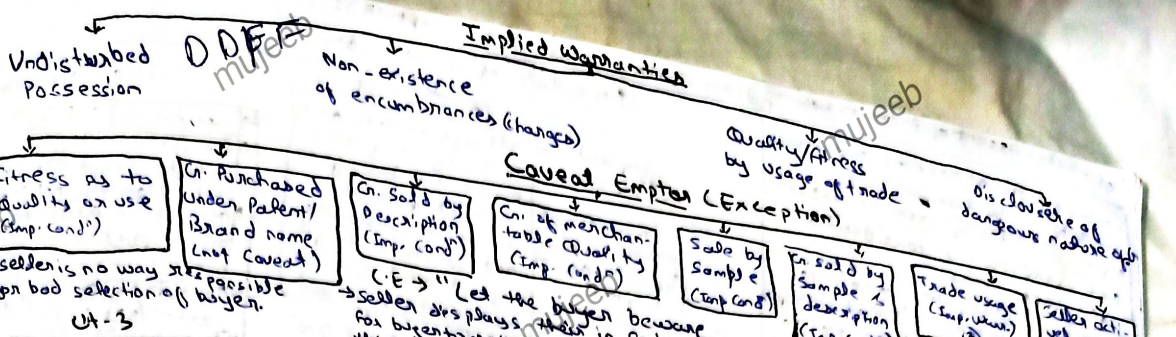 Implied Warranties
Undisturbed
Possession
DDFF
Non-existence
of encumbrances (changes)
Quality/fitness
by usage of trade
Disclousere of
dangrous nature of
Caveat Emptor (Exception)
Fitness as to
Quality or use
(Imp. condⁿ)
G. Purchased
under Patent/
Brand name
(not Caveat)
G. Sold by
Description
(Imp. Condⁿ)
G. of merchan-
table Quality
(Imp. Condⁿ)
Sale by
Sample
(Imp Condⁿ)
G. sold by
Sample &
description
Trade usage
(Imp. warr.)
Seller acti-
seller is no way responsible
for bad selection of buyer.
C.E → "Let the buyer beware
→ seller displays their
Ut-3
mujeeb
mujeeb
mujeeb